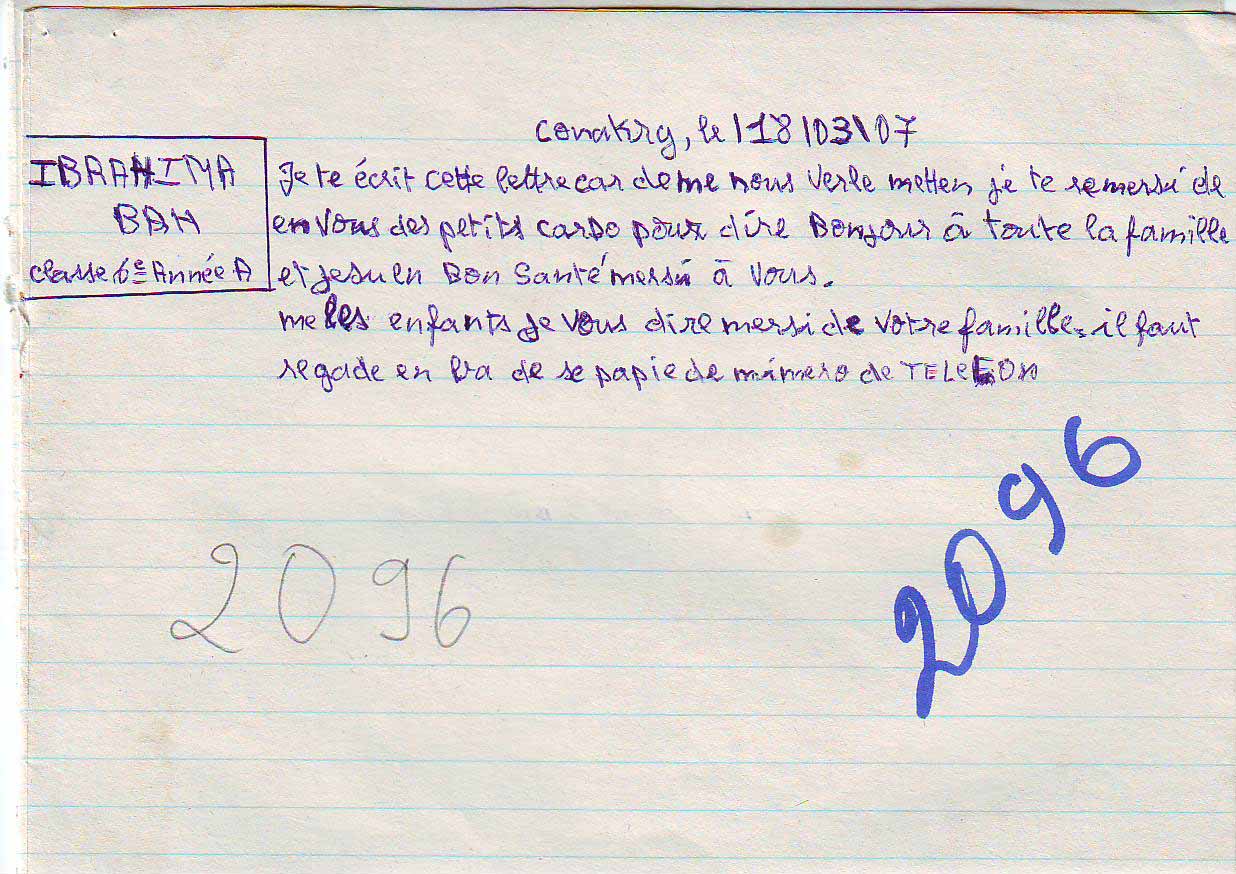 Conakry, le 18/03/07
IBRAHIMA
BAH
classe 6e Année A
Je te écrit cette lettre car de me nous verle metten je te remersi de
en vous des petits cardo pour dire Bonjour à toute la famille
et je suln Bon Santé mersi à vous.
me les enfants je vous dire mersi de votre famille. il faut
regade en ba de se papie de mimero de TELEFON
2096
2096